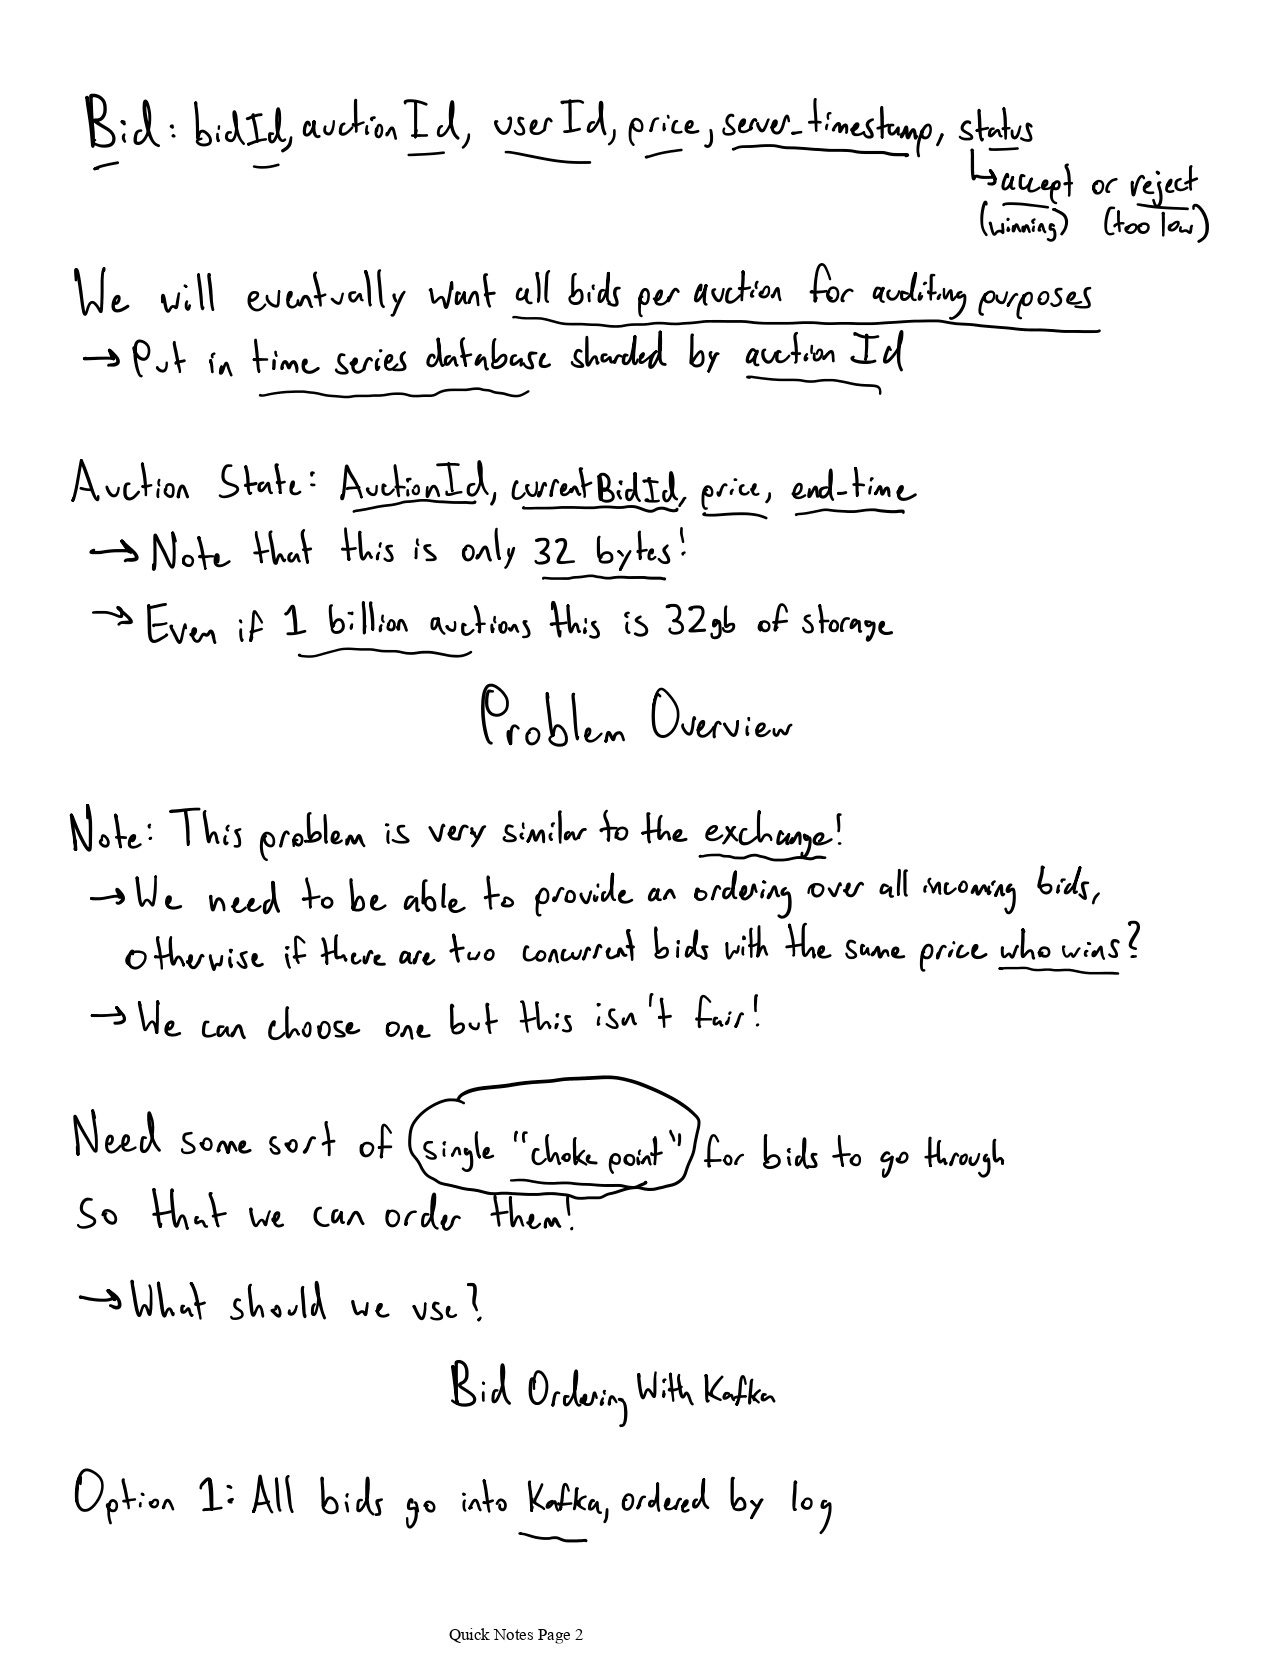 Bid: bidId, auctionId, userId, price, server_timestamp, status
↳ accept or reject
(winning) (too low)
We will eventually want all bids per auction for auditing purposes
→ Put in time series database sharded by auctionId
Auction State: AuctionId, currentBidId, price, end-time
→ Note that this is only 32 bytes!
→ Even if 1 billion auctions this is 32gb of storage
Problem Overview
Note: This problem is very similar to the exchange!
→ We need to be able to provide an ordering over all incoming bids,
otherwise if there are two concurrent bids with the same price who wins?
→ We can choose one but this isn't fair!
Need some sort of single "choke point" for bids to go through
so that we can order them!
→ What should we use?
Bid Ordering With Kafka
Option 1: All bids go into Kafka, ordered by log
Quick Notes Page 2